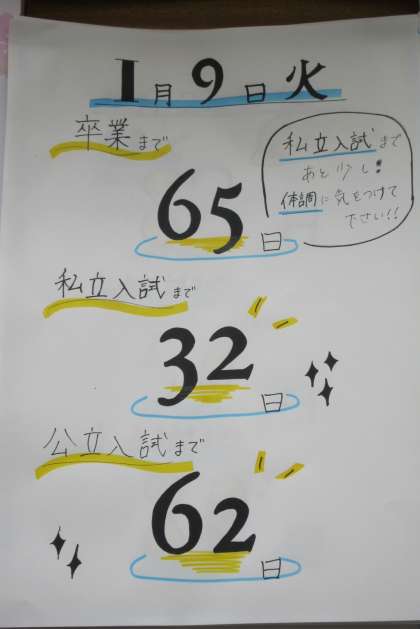 1月9日火
卒業まで
65日
私立入試まで
あと少し!
体調に気をつけて
下さい!!
私立入試まで
32日
公立入試まで
62日